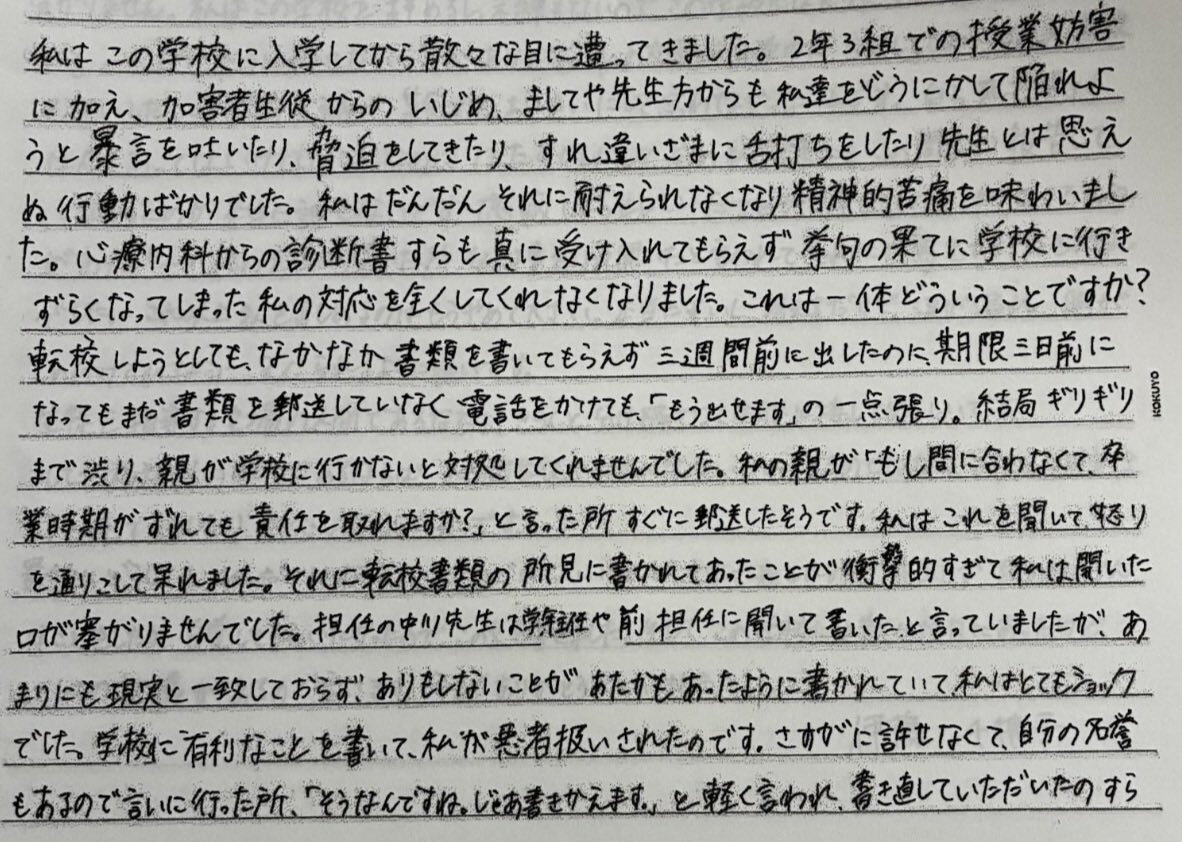 私はこの学校に入学してから散々な目に遭ってきました。2年3組での授業妨害
に加え、加害者生徒からのいじめ、ましてや先生方からも私達をどうにかして陥れよ
うと暴言を吐いたり、脅迫をしてきたり、すれ違いざまに舌打ちをしたり先生とは思え
ぬ行動ばかりでした。私はだんだんそれに耐えられなくなり精神的苦痛を味わいまし
た。心療内科からの診断書すらも真に受け入れてもらえず挙句の果てに学校に行き
ずらくなってしまった私の対応を全くしてくれなくなりました。これは一体どういうことですか?
転校しようとしても、なかなか書類を書いてもらえず三週間前に出したのに、期限三日前に
なってもまだ書類を郵送していなく電話をかけても、「もう出せます」の一点張り。結局ギリギリ
まで渋り、親が学校に行かないと対処してくれませんでした。私の親が「もし間に合わなくて、卒
業時期がずれても責任を取れますか?」と言った所すぐに郵送したそうです。私はこれを聞いて、怒り
を通りこして呆れました。それに転校書類の所見に書かれてあったことが衝撃的すぎて私は開いた
口が塞がりませんでした。担任の中川先生は学年主任や前担任に聞いて書いたと言っていましたが、あ
まりにも現実と一致しておらず、ありもしないことがあたかもあったように書かれていて、私はとてもショック
でした。学校に有利なことを書いて、私が悪者扱いされたのです。さすがに許せなくて、自分の名誉
もあるので言いに行った所、「そうなんですね。じゃあ書きかえます。」と軽く言われ、書き直していただいたのすら
KOKUYO